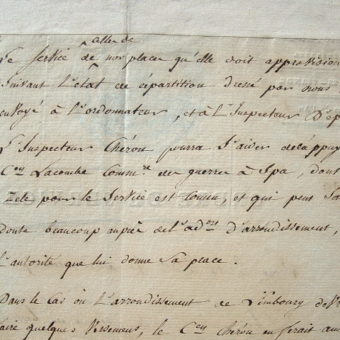 celle de
Le service de nos places qu'elle doit approvision
Suivant L'Etat de répartition dressé par nous
envoyé à l'ordonnateur, et à L'Inspecteur D'ap
L'Inspecteur Chéron pourra S'aider de l'appuy
Cen Lacombe Commre des guerres à Spa, dont
Zèle pour le Service est connu, et qui peut Sa
doute beaucoup auprès de l'adon D'arrondissement,
L'autorité que lui donne Sa place.
Dans le Cas où L'arrondissement de Limbourg de
faire quelques Versemens, le Cen Chéron en ferait